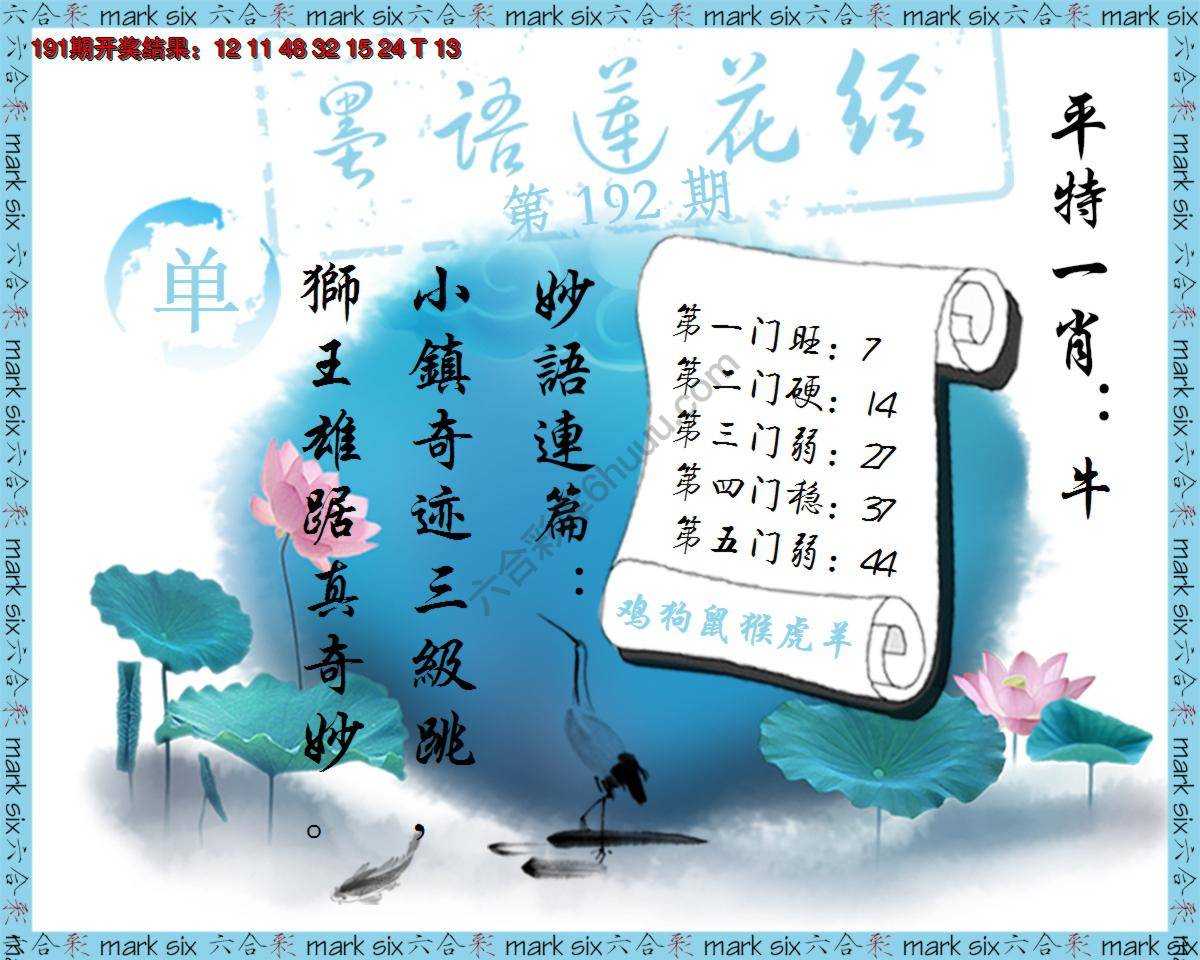 六合彩 mark six 六合彩 mark six 六合彩 mark six 六合彩 mark six 六合彩 mark six 六合彩 mark six
191期开奖结果：12 11 48 32 15 24 T 13
墨语莲花经
第 192 期
平特一肖：牛
单
妙語連篇：
小鎮奇迹三級跳，
獅王雄踞真奇妙。
第一门旺：7
第二门硬：14
第三门弱：27
第四门稳：37
第五门弱：44
鸡狗鼠猴虎羊
六合彩 mark six 六合彩 mark six 六合彩 mark six 六合彩 mark six 六合彩 mark six 六合彩 mark six